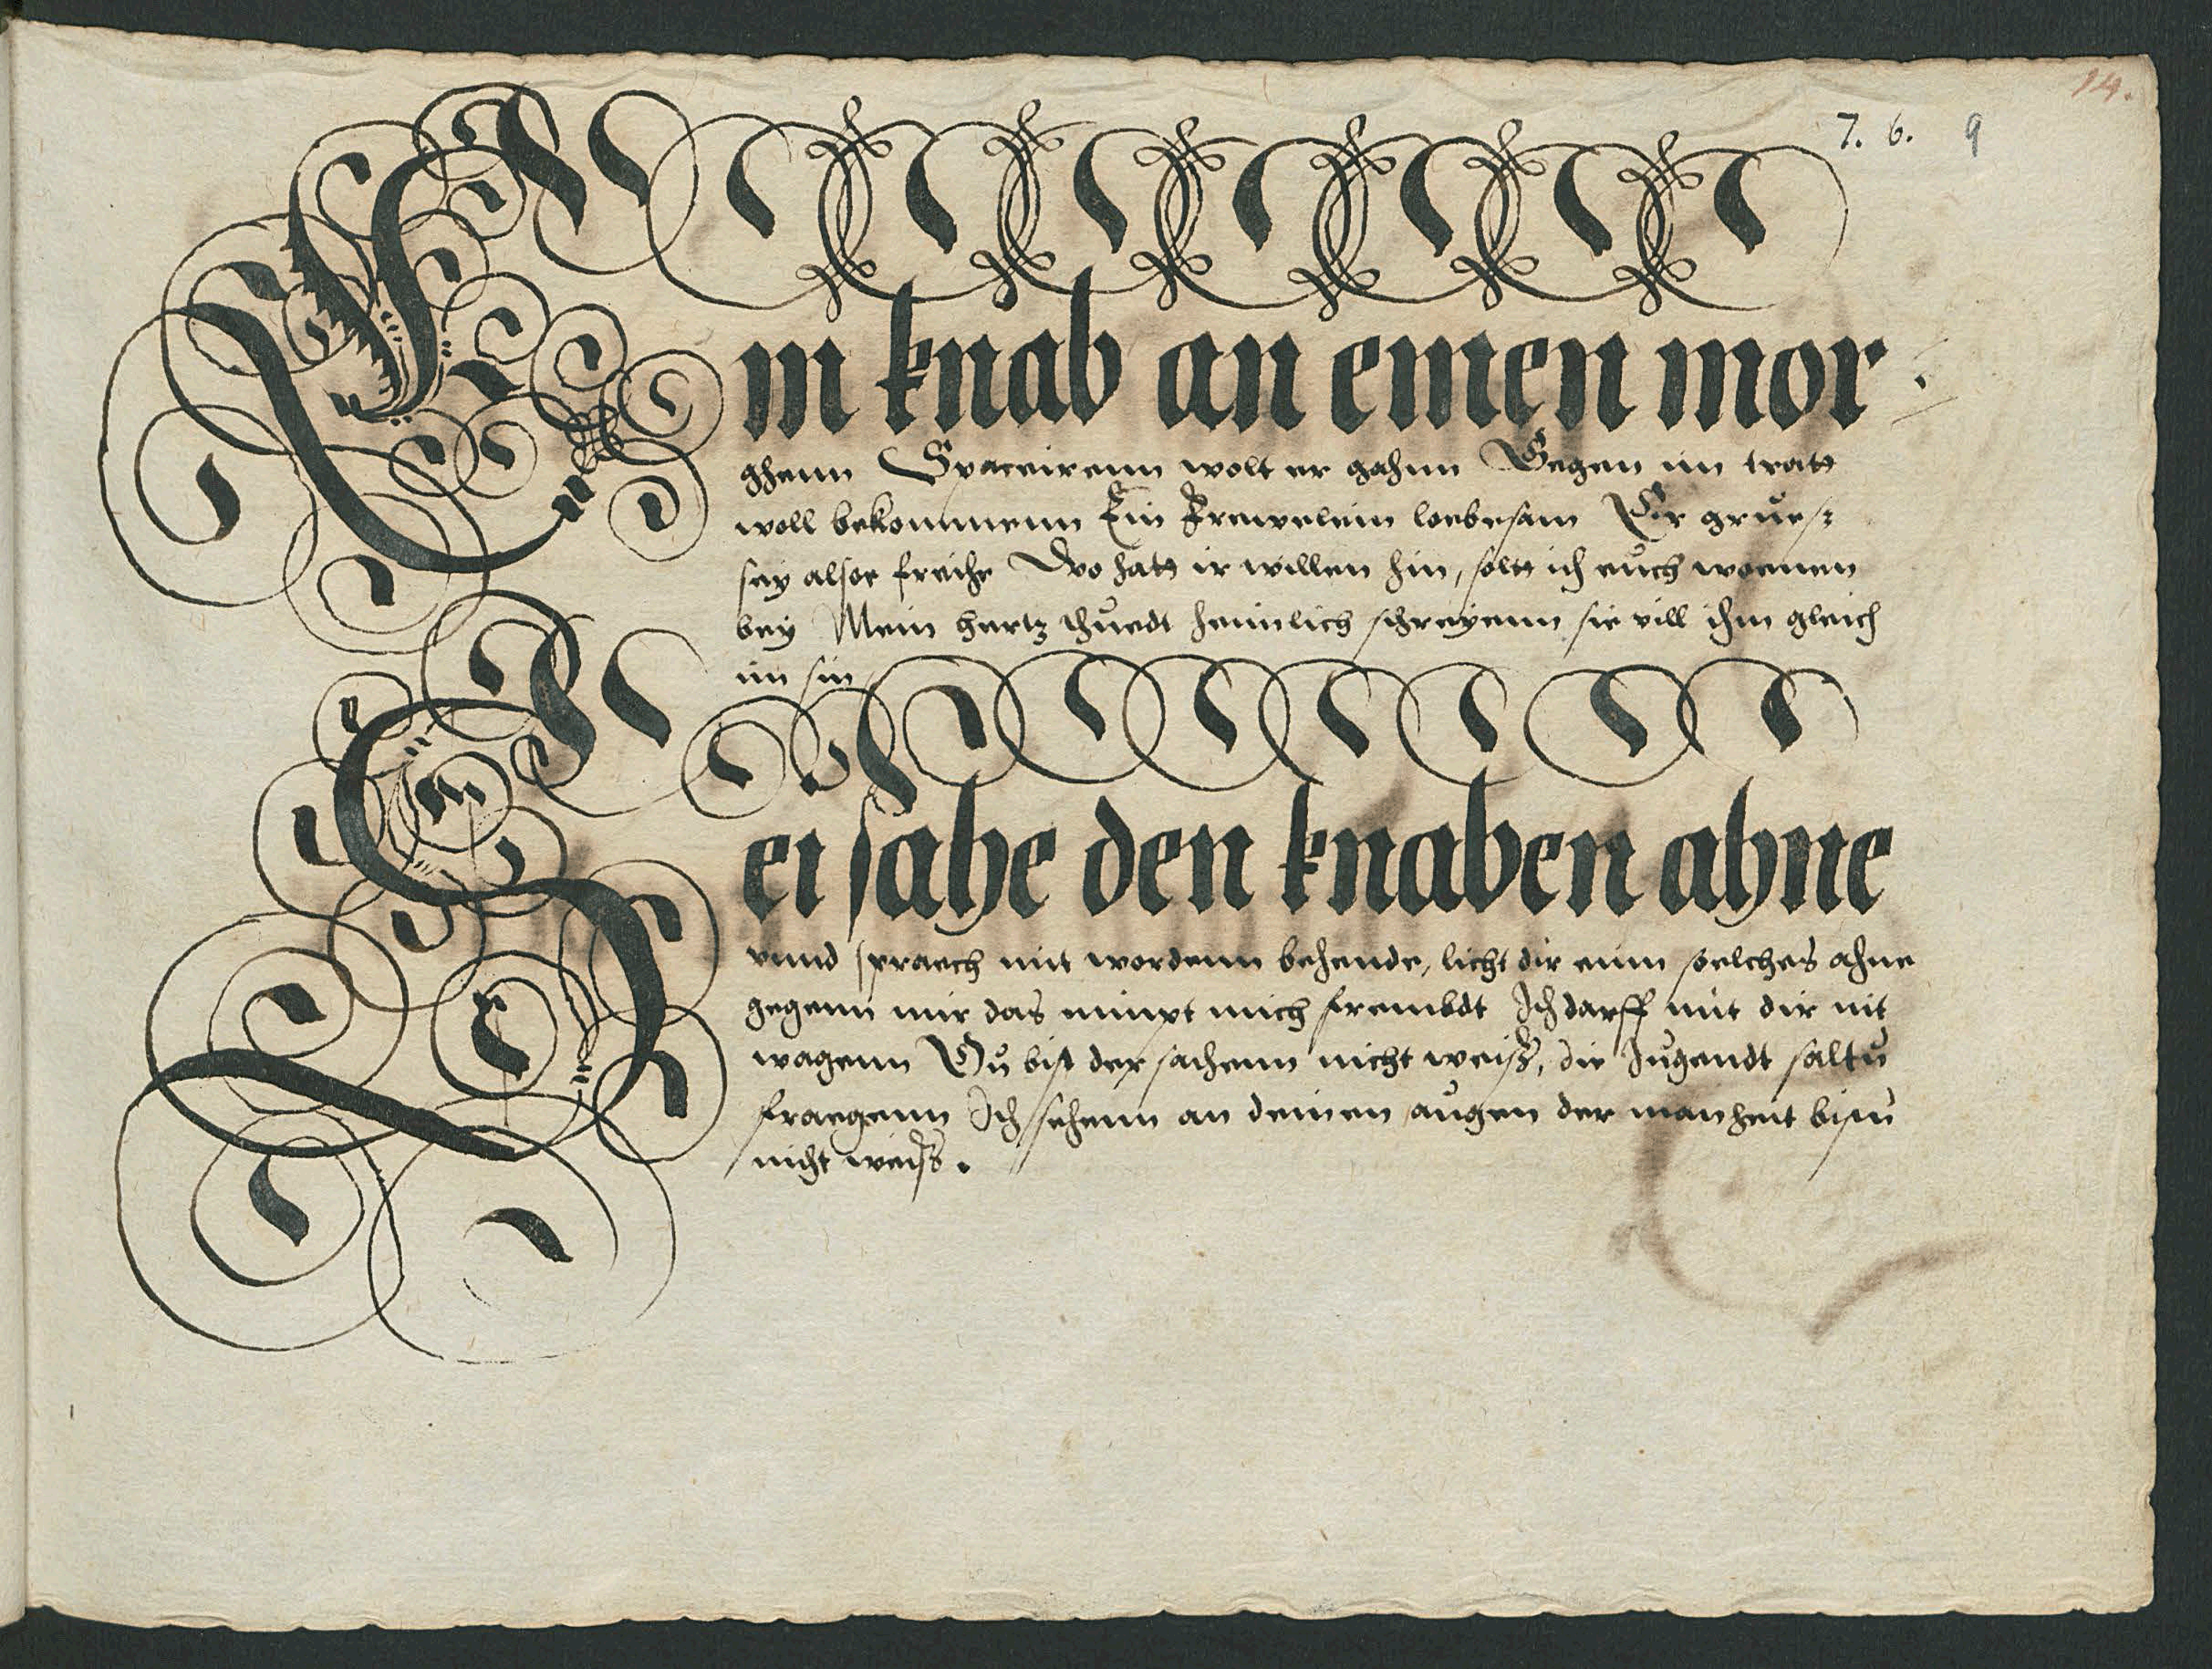 14.
7. 6. 9
Ein knab an einen mor
ghenn Spaceirenn wolt er gahnn Gegen im tratt
woll bekommenn Ein Frewelein loebesam Er grues=
sey alsoe freihe Wo hatt ir willen hin, soltt ich euch woenen
bey Mein hertz thuedt heimlich schreyenn sie vill ihm gleich
im sin
Sei sahe den knaben ahne
vnnd spraech mit wordenn behende, licht dir eim soelches ahne
gegenn mir das nimpt mich frembdt Ich darff mit dir nit
wagenn Du bist der sachenn nicht weiß, die Jugendt saltu
fraegenn Ich sehenn an deinen augen der manheit bistu
nicht weiß.